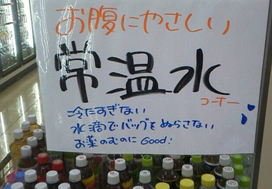 お腹にやさしい
常温水
コーナー
冷たすぎない
水滴でバッグをぬらさない
お薬のむのにGood!